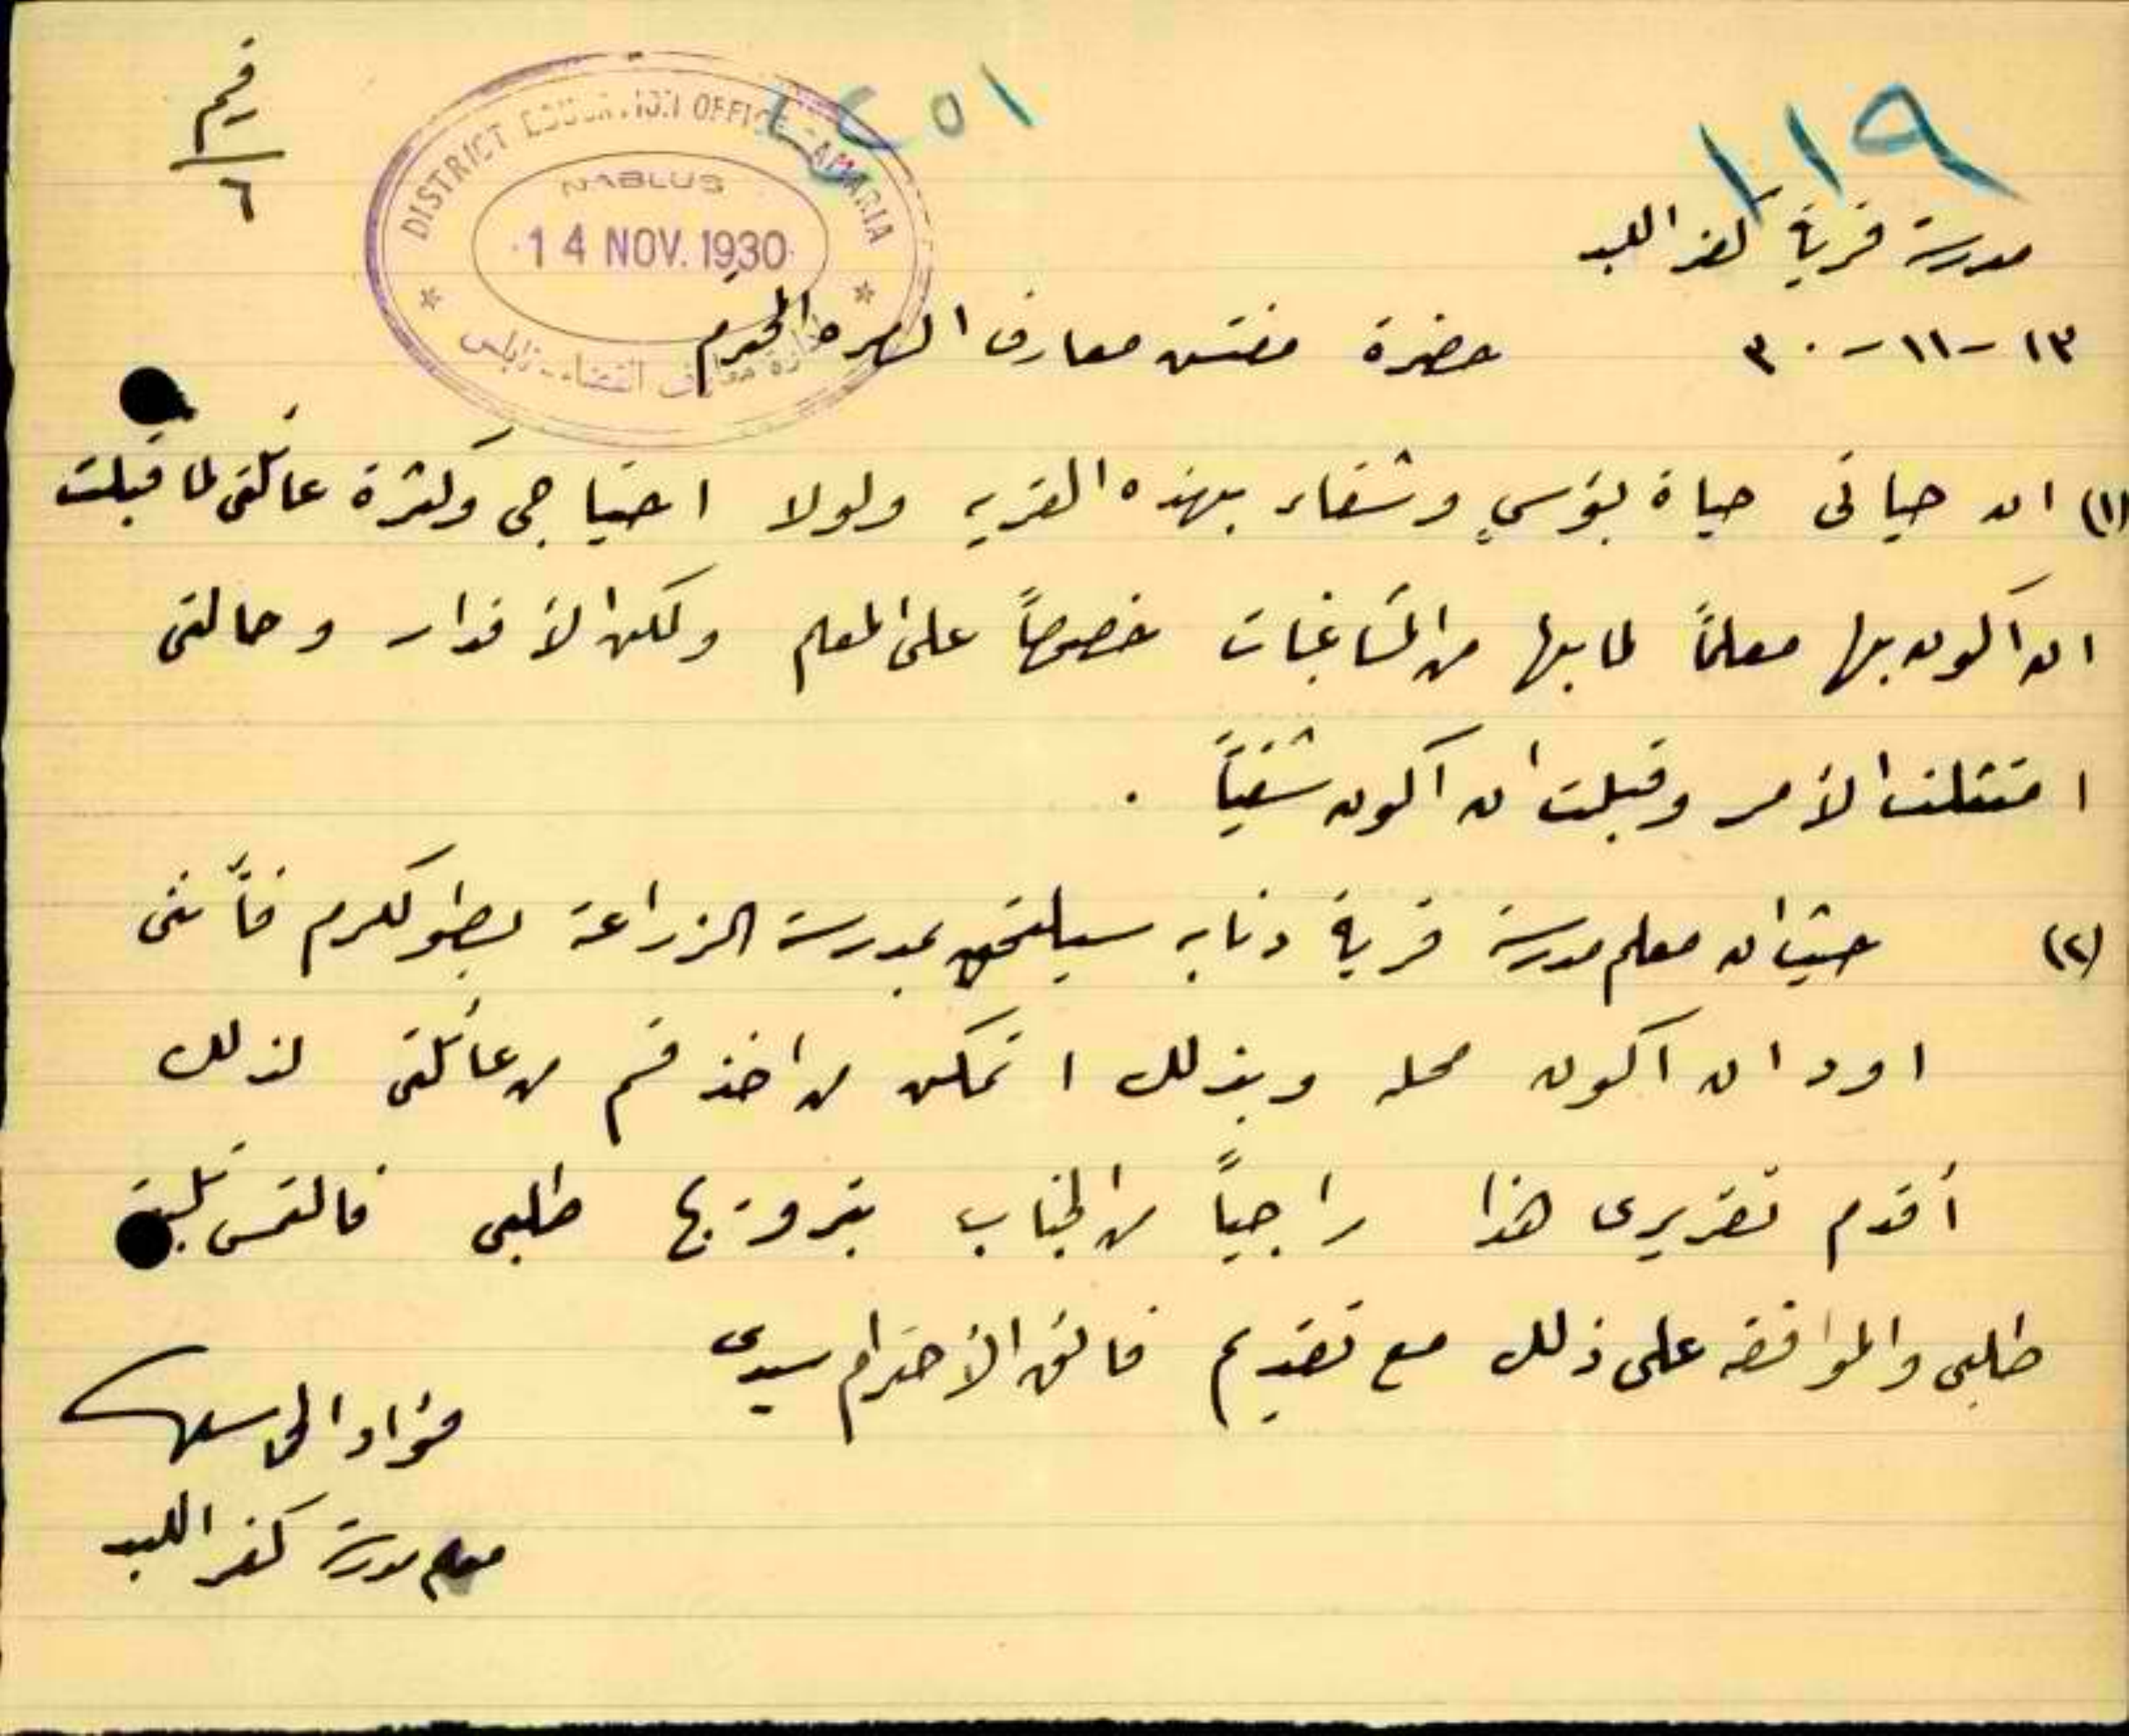 ١١٩
٢٥١
رقيم
٦
DISTRICT EDUCATION OFFICE SAMARIA
NABLUS
14 NOV. 1930
ادارة معارف القضاء - نابلس
مدرسة قرية كفر اللبد
١٣-١١-٣٠
حضرة مفتش معارف السمره المحترم
(١) ان حياتى حياة بؤس وشقاء بهذه القريه ولولا احتياجى وكثرة عائلتى لما قبلت
ان اكون بها معلماً لما بها من المشاغبات خصوصاً على المعلم ولكن الأقدار وحالتى
امتثلت الأمر وقبلت ان اكون شقياً .
(٢) حيث ان معلم مدرسة قرية ذنابه سيلتحق بمدرسة الزراعة بطولكرم فأننى
اود ان اكون محله وبذلك اتمكن من اخذ قسم من عائلتى لذلك
أقدم تقريرى هذا راجياً من الجناب بترويج طلبى فالتمس تلبية
طلبى والموافقه على ذلك مع تقديم فائق الأحترام سيدى
فؤاد
معلم مدرسة كفر اللبد